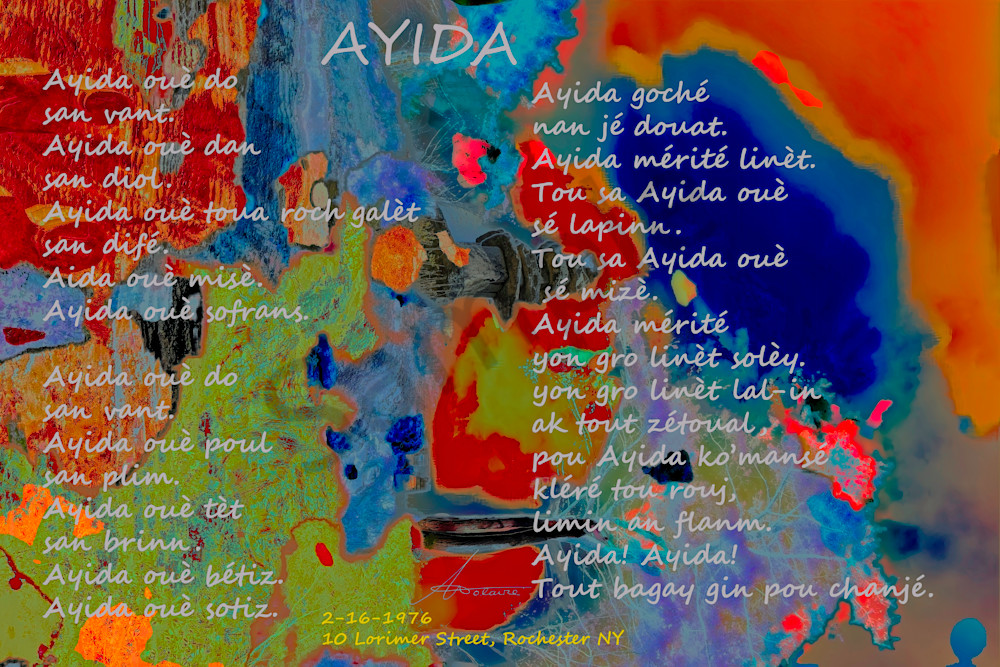 AYIDA
Ayida ouè do
san vant.
Ayida ouè dan
san diol.
Ayida ouè toua roch galèt
san difé.
Aida ouè misè.
Ayida ouè sofrans.
Ayida ouè do
san vant.
Ayida ouè poul
san plim.
Ayida ouè tèt
san brinn
Ayida ouè bétiz.
Ayida ouè sotiz.
Ayida goché
nan jé douat.
Ayida mérité linèt.
Tou sa Ayida ouè
sé lapinn.
Tou sa Ayida ouè
sé mizè.
Ayida mérité
yon gro linèt solèy.
yon gro linèt lal-in
ak tout zétoual,
pou Ayida ko'mansé
kléré tou rouj,
limin an flanm.
Ayida! Ayida!
Tout bagay gin pou chanjé.
2-16-1976
10 Lorimer Street, Rochester NY